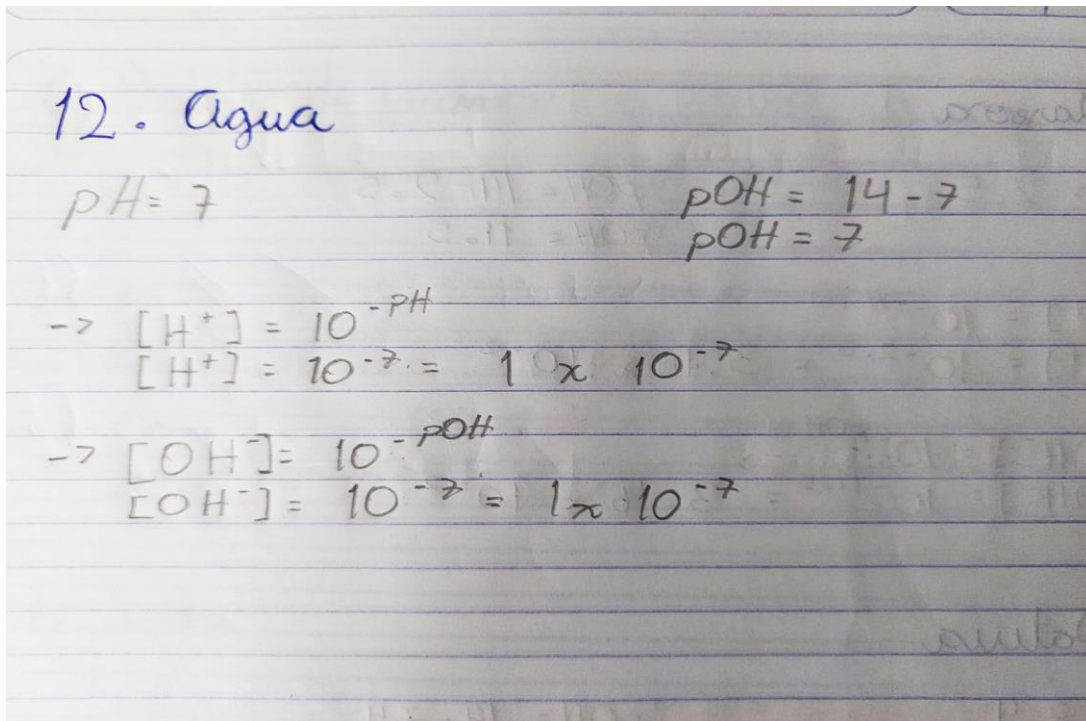 12. Agua
pH = 7
pOH = 14 - 7
pOH = 7
-> [H⁺] = 10⁻ᵖᴴ
[H⁺] = 10⁻⁷ = 1 x 10⁻⁷
-> [OH⁻] = 10⁻ᵖᴼᴴ
[OH⁻] = 10⁻⁷ = 1x 10⁻⁷